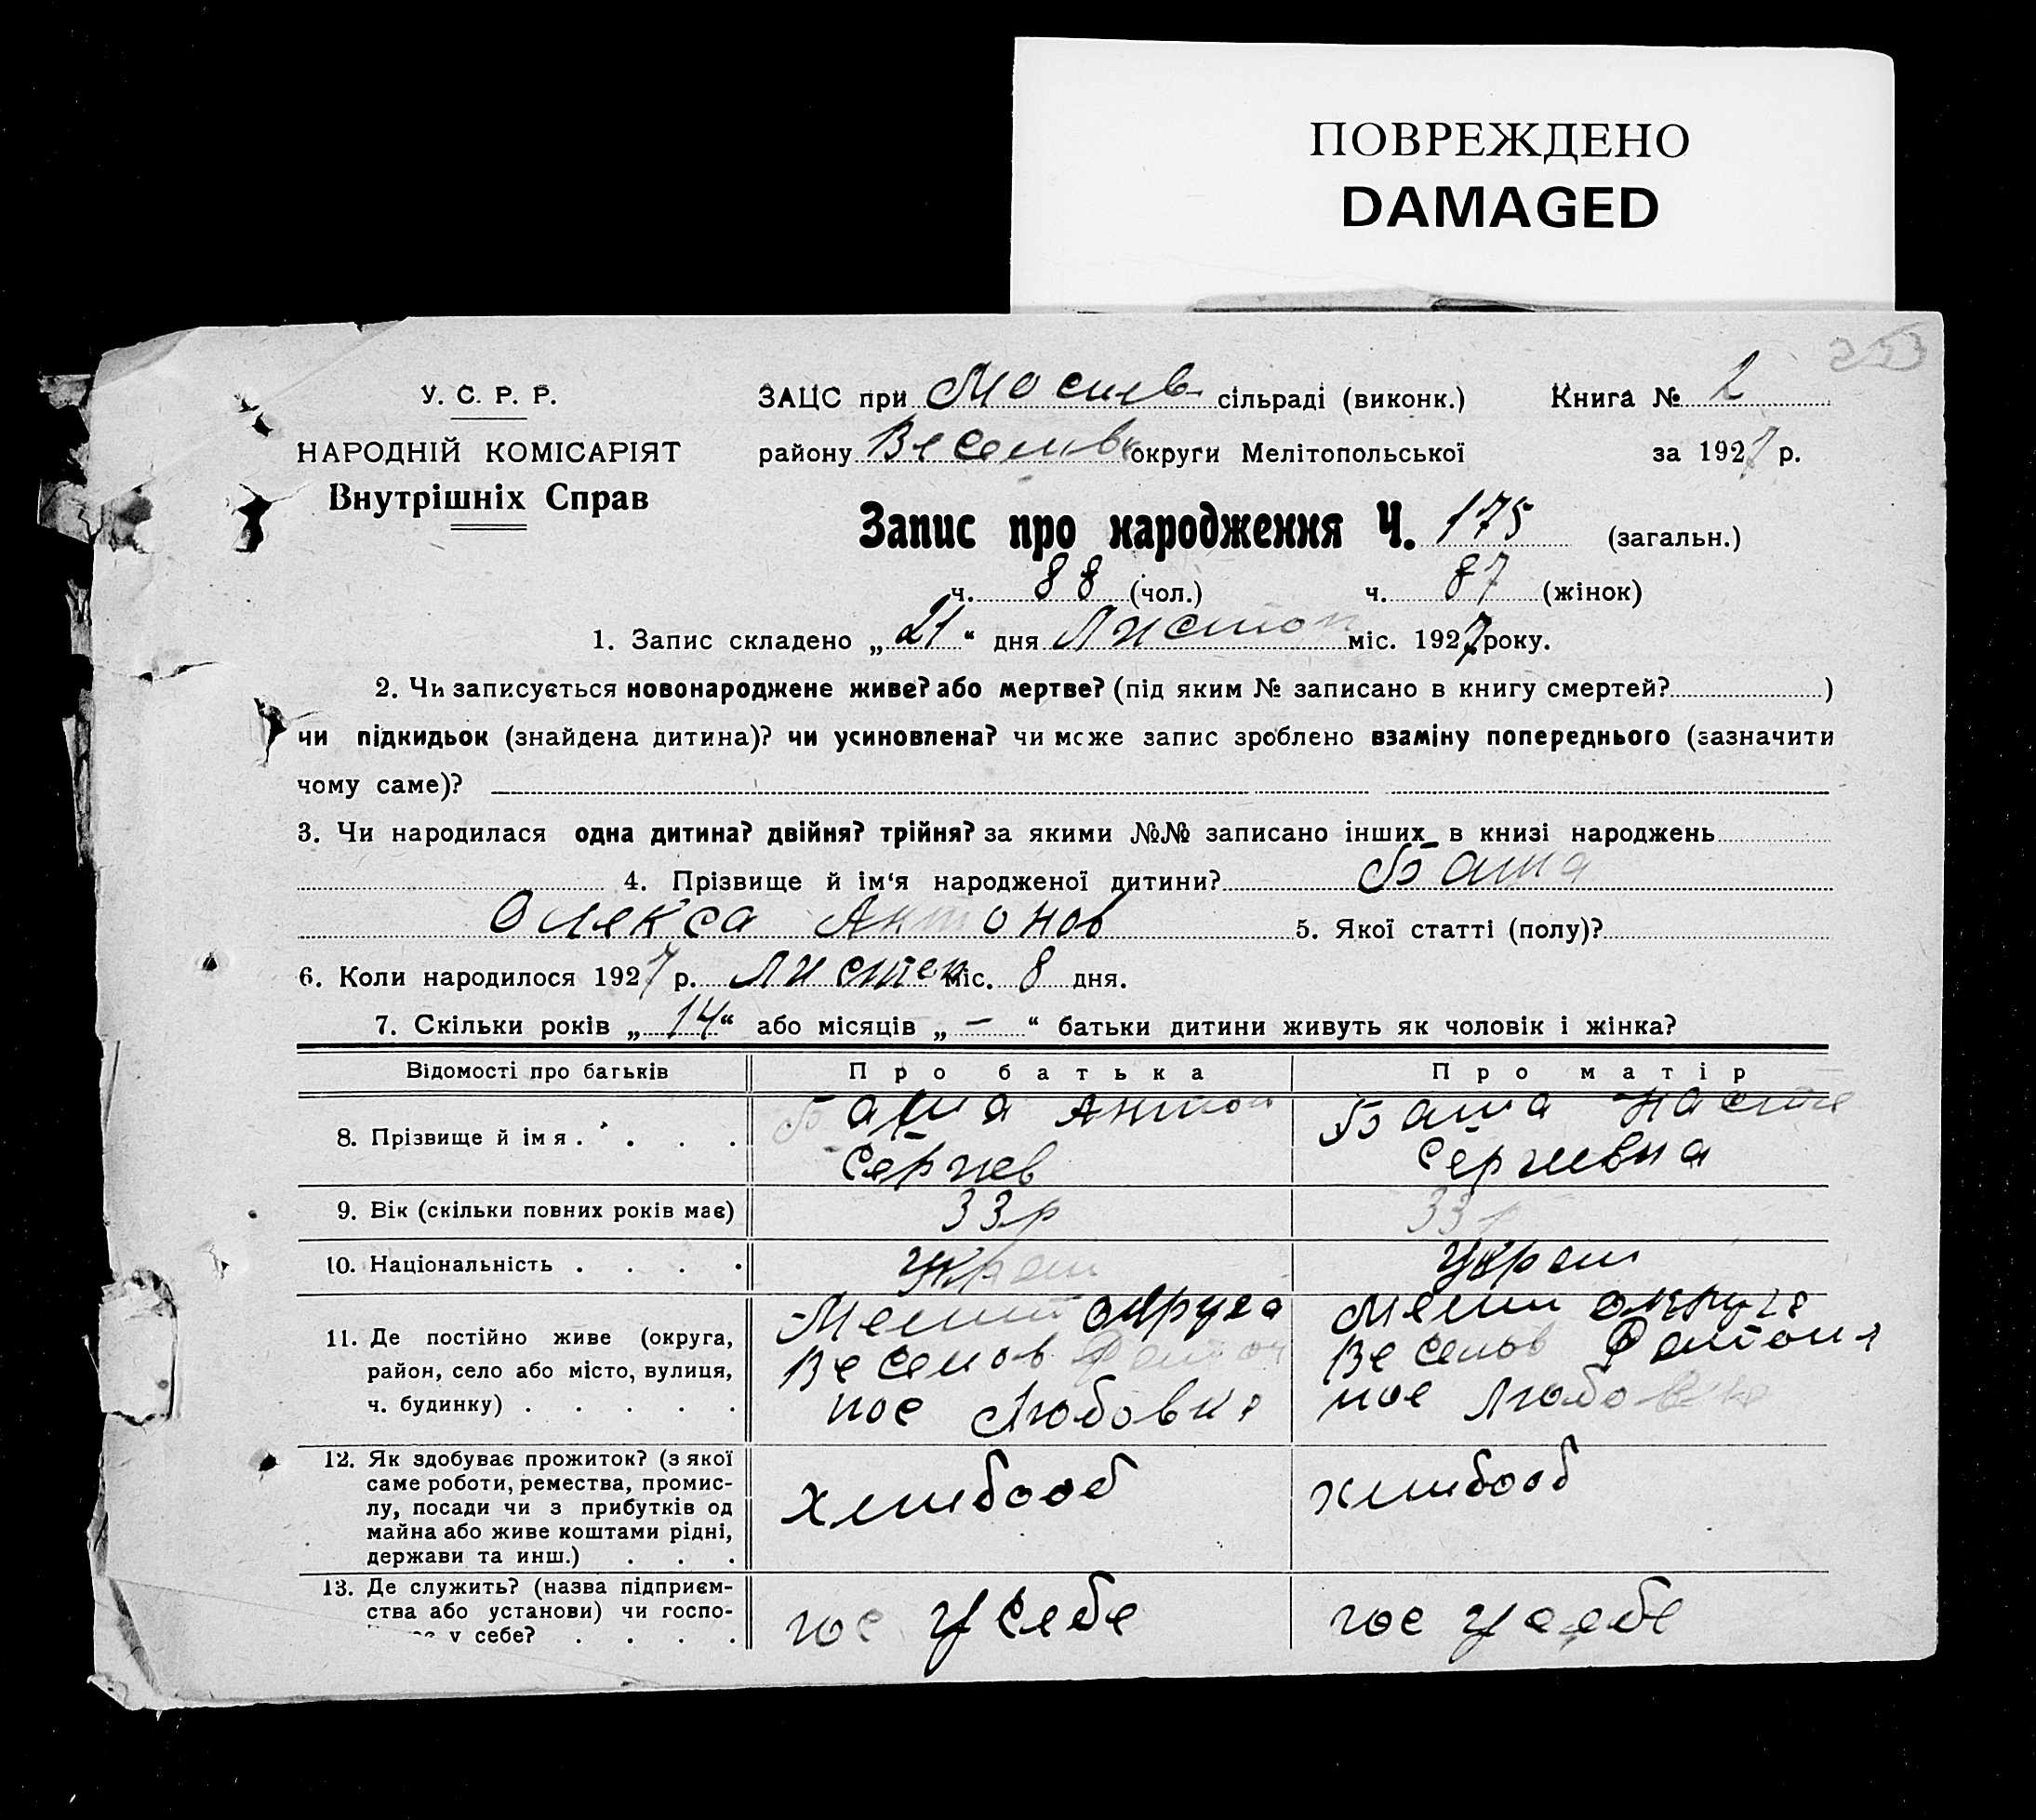 ПОВРЕЖДЕНО
DAMAGED
253
У. С. Р. Р.
ЗАЦС при сільраді (виконк.) Книга № 2
НАРОДНІЙ КОМІСАРІЯТ
району Веселів округи Мелітопольської за 1927 р.
Внутрішніх Справ
Запис про народження Ч. 175 (загальн.)
ч. 88 (чол.) ч. 87 (жінок)
1. Запис складено „21“ дня Листоп міс. 1927 року.
2. Чи записується новонароджене живе? або мертве? (під яким № записано в книгу смертей? )
чи підкидьок (знайдена дитина)? чи усиновлена? чи може запис зроблено взаміну попереднього (зазначити
чому саме)?
3. Чи народилася одна дитина? двійня? трійня? за якими №№ записано інших в книзі народжень
4. Прізвище й ім‘я народженої дитини? Баша
Олекса Антонов 5. Якої статті (полу)?
6. Коли народилося 1927 р. Листоп міс. 8 дня.
7. Скільки років „14“ або місяців „—“ батьки дитини живуть як чоловік і жінка?
Відомості про батьків Про батька Про матір
8. Прізвище й імя . . . . Баша Антон Баша Настя
Сергиев Сергиевна
9. Вік (скільки повних років має) 33 р 33 р
10. Національність . . . . Украи Украи
11. Де постійно живе (округа, Мелит округа Мелит округа
район, село або місто, вулиця, Веселов Района Веселов Района
ч. будинку) . . . . . пос Любовка пос Любовка
12. Як здобуває прожиток? (з якої
саме роботи, ремества, промис-
лу, посади чи з прибутків од хлибооб хлибооб
майна або живе коштами рідні,
держави та инш.) . . .
13. Де служить? (назва підприєм-
ства або установи) чи госпо- гос у себе гос у себе
у себе? . . . .